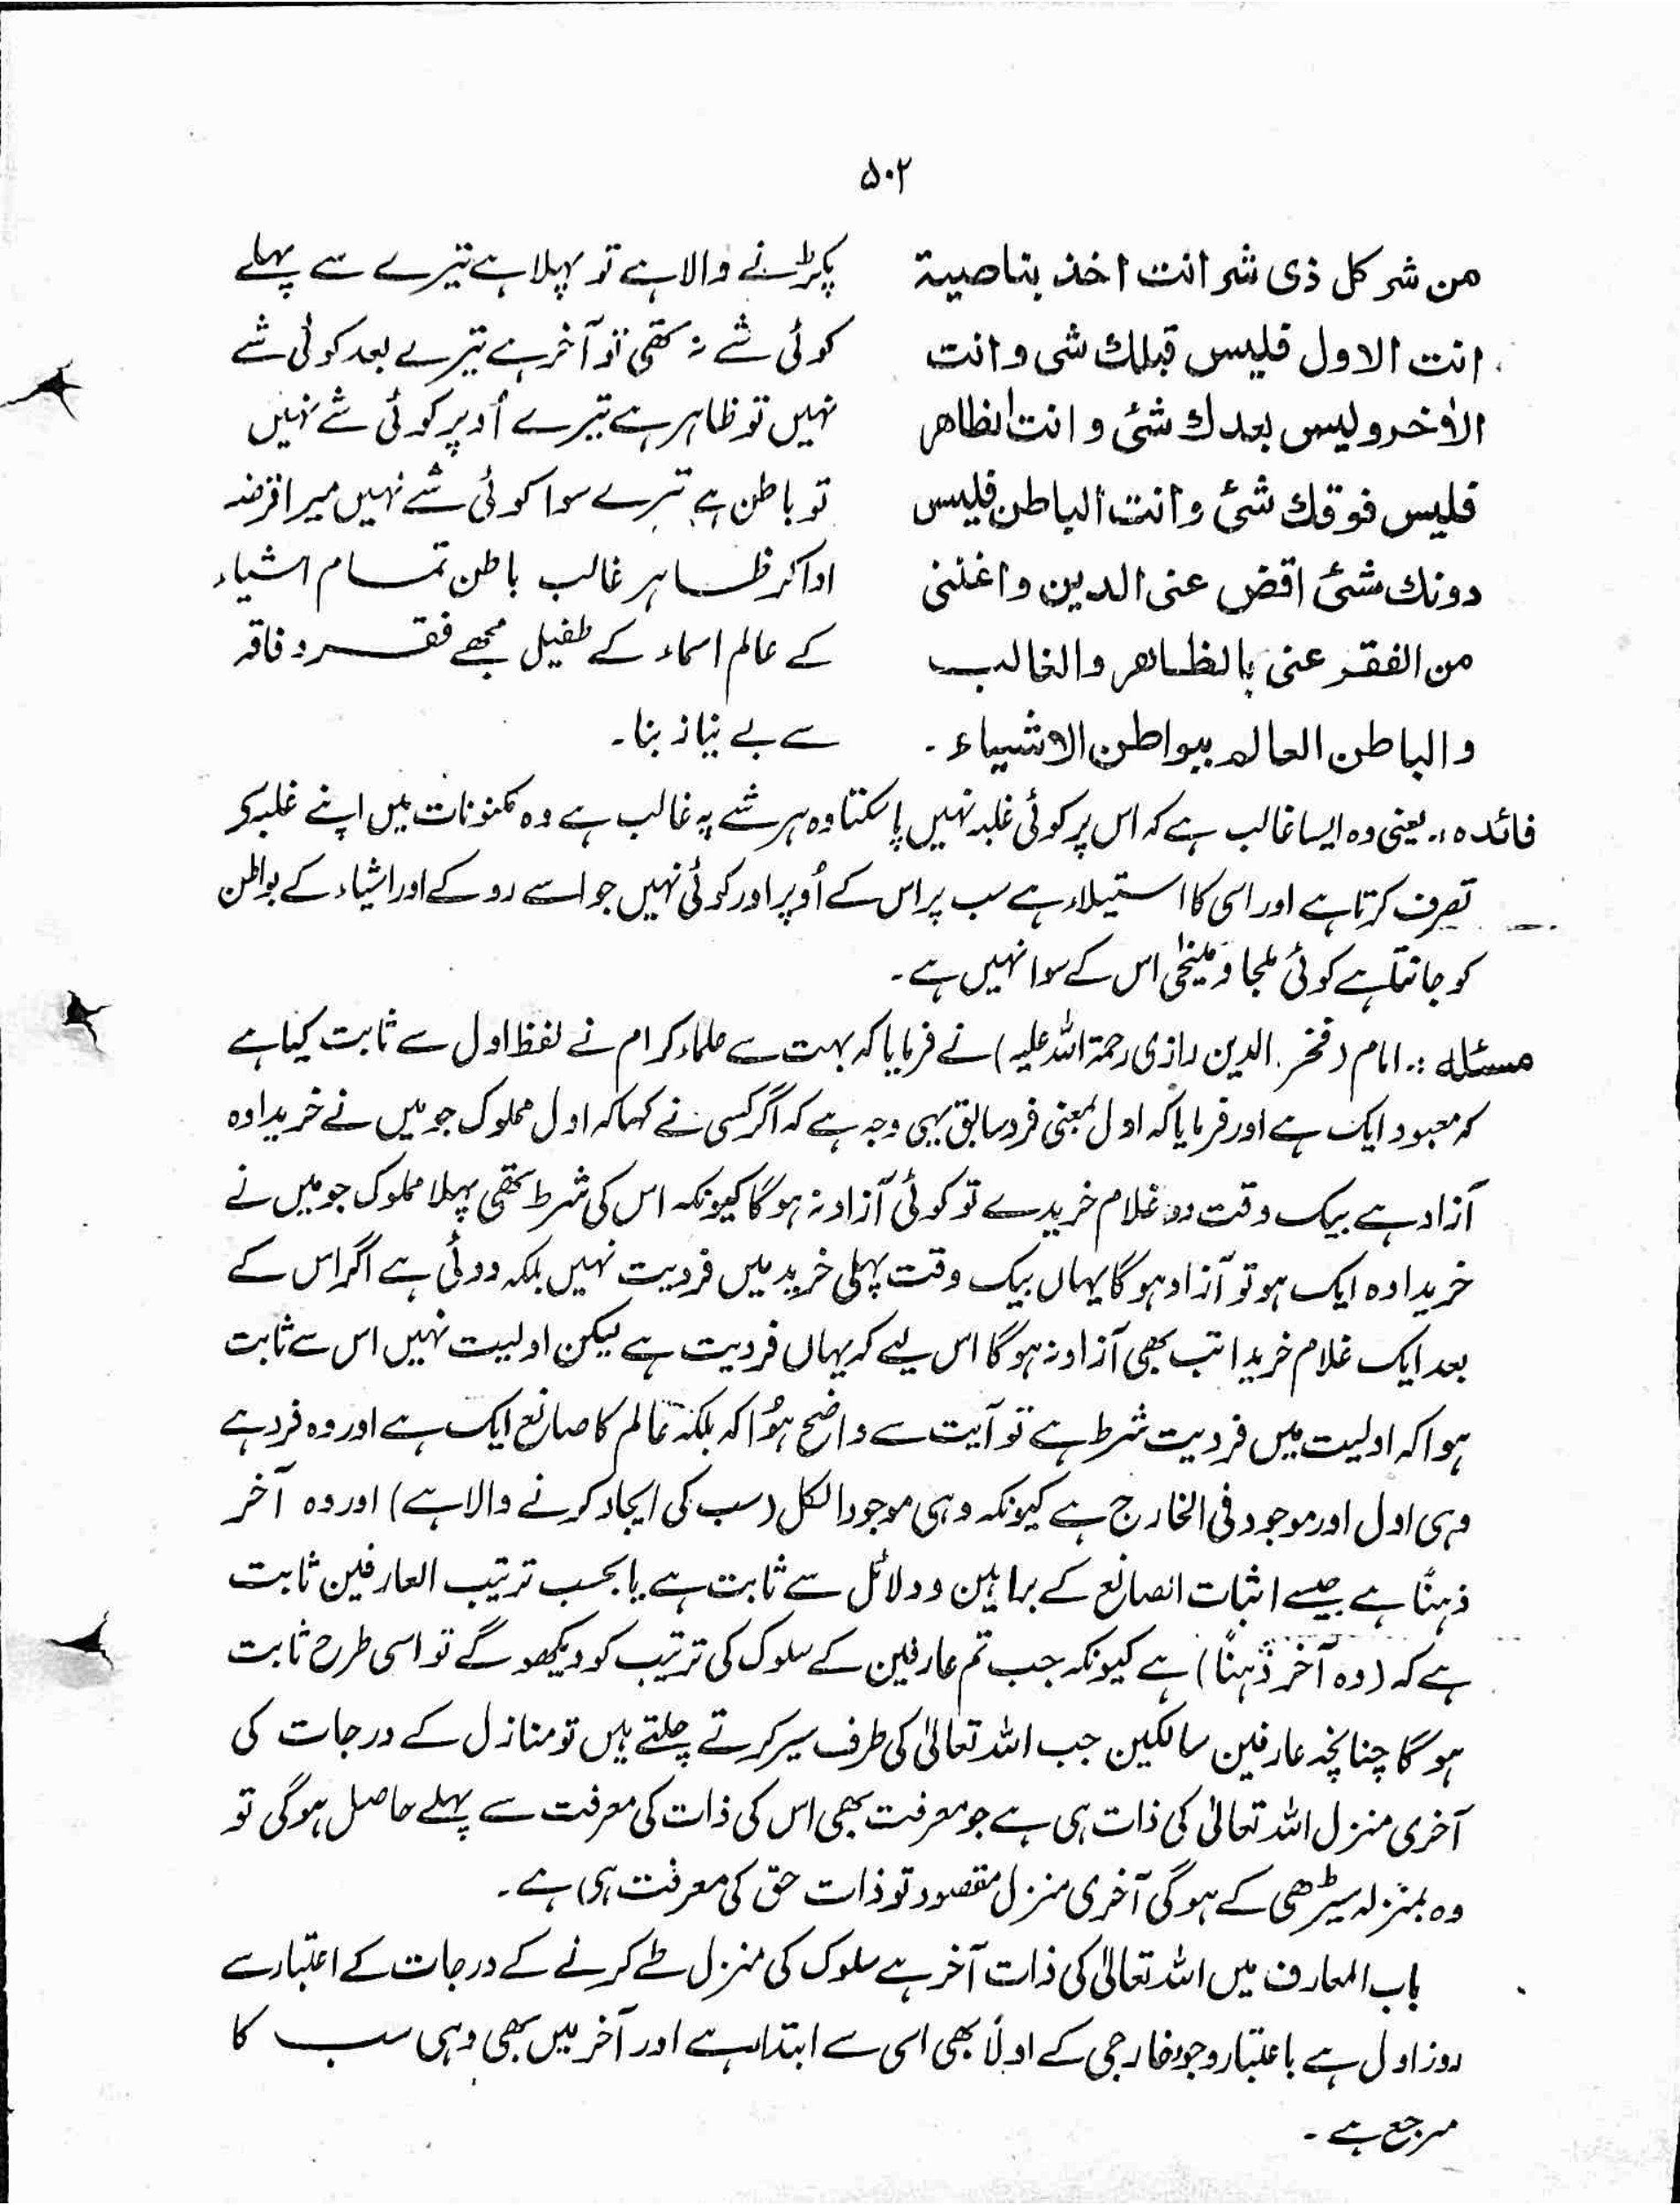 ۵۰۲
من شر کل ذی شر انت اخذ بناصیۃ
انت الاول فلیس قبلك شی و انت
الاٰخر ولیس بعدك شیٔ و انت الظاھر
فلیس فوقك شیٔ و انت الباطن فلیس
دونك شیٔ اقض عنی الدین و اغننی
من الفقر عنی بالظاھر والغالب
و الباطن العالم ببواطن الاشیاء ۔
پکڑنے والا ہے تو پہلا ہے تیرے سے پہلے
کوئی شے نہ تھی تو آخر ہے تیرے بعد کوئی شے
نہیں تو ظاہر ہے تیرے اُوپر کوئی شے نہیں
تو باطن ہے تیرے سوا کوئی شے نہیں میرا قرضہ
ادا کر ظاہر غالب باطن تمام اشیاء
کے عالم اسماء کے طفیل مجھے فقر و فاقہ
سے بے نیاز بنا۔
فائدہ :۔ یعنی وہ ایسا غالب ہے کہ اس پر کوئی غلبہ نہیں پا سکتا وہ ہر شے پہ غالب ہے وہ مکنونات میں اپنے غلبہ کر
تصرف کرتا ہے اور اسی کا استیلاء ہے سب پر اس کے اُوپر اور کوئی نہیں جو اسے روکے اور اشیاء کے بواطن
کو جانتا ہے کوئی ملجا و منجیٰ اس کے سوا نہیں ہے۔
مسئلہ :۔ امام (فخر الدین رازی رحمۃ اللہ علیہ) نے فرمایا کہ بہت سے علماء کرام نے لفظ اول سے ثابت کیا ہے
کہ معبود ایک ہے اور فرمایا کہ اول بمعنی فرد سابق یہی وجہ ہے کہ اگر کسی نے کہا کہ اول مملوک جو میں نے خریدا وہ
آزاد ہے بیک وقت دو غلام خریدے تو کوئی آزاد نہ ہو گا کیونکہ اس کی شرط تھی پہلا مملوک جو میں نے
خریدا وہ ایک ہو تو آزاد ہو گا یہاں بیک وقت پہلی خرید میں فردیت نہیں بلکہ دوئی ہے اگر اس کے
بعد ایک غلام خریدا تب بھی آزاد نہ ہو گا اس لیے کہ یہاں فردیت ہے لیکن اولیت نہیں اس سے ثابت
ہوا کہ اولیت میں فردیت شرط ہے تو آیت سے واضح ہُوا کہ بلکہ عالم کا صانع ایک ہے اور وہ فرد ہے
وہی اول اور موجود فی الخارج ہے کیونکہ وہی موجود الکل (سب کی ایجاد کرنے والا ہے) اور وہ آخر
ذہنًا ہے جیسے اثبات الصانع کے براہین و دلائل سے ثابت ہے یا بحسب ترتیب العارفین ثابت
ہے کہ (وہ آخر ذہنًا) ہے کیونکہ جب تم عارفین کے سلوک کی ترتیب کو دیکھو گے تو اسی طرح ثابت
ہو گا چنانچہ عارفین سالکین جب اللہ تعالیٰ کی طرف سیر کرتے چلتے ہیں تو منازل کے درجات کی
آخری منزل اللہ تعالیٰ کی ذات ہی ہے جو معرفت بھی اس کی ذات کی معرفت سے پہلے حاصل ہو گی تو
وہ بمنزلہ سیڑھی کے ہو گی آخری منزل مقصود تو ذات حق کی معرفت ہی ہے۔
باب المعارف میں اللہ تعالیٰ کی ذات آخر ہے سلوک کی منزل طے کرنے کے درجات کے اعتبار سے
روز اول ہے باعتبار وجود خارجی کے اولًا بھی اسی سے ابتدا ہے اور آخر میں بھی وہی سب کا
مرجع ہے۔